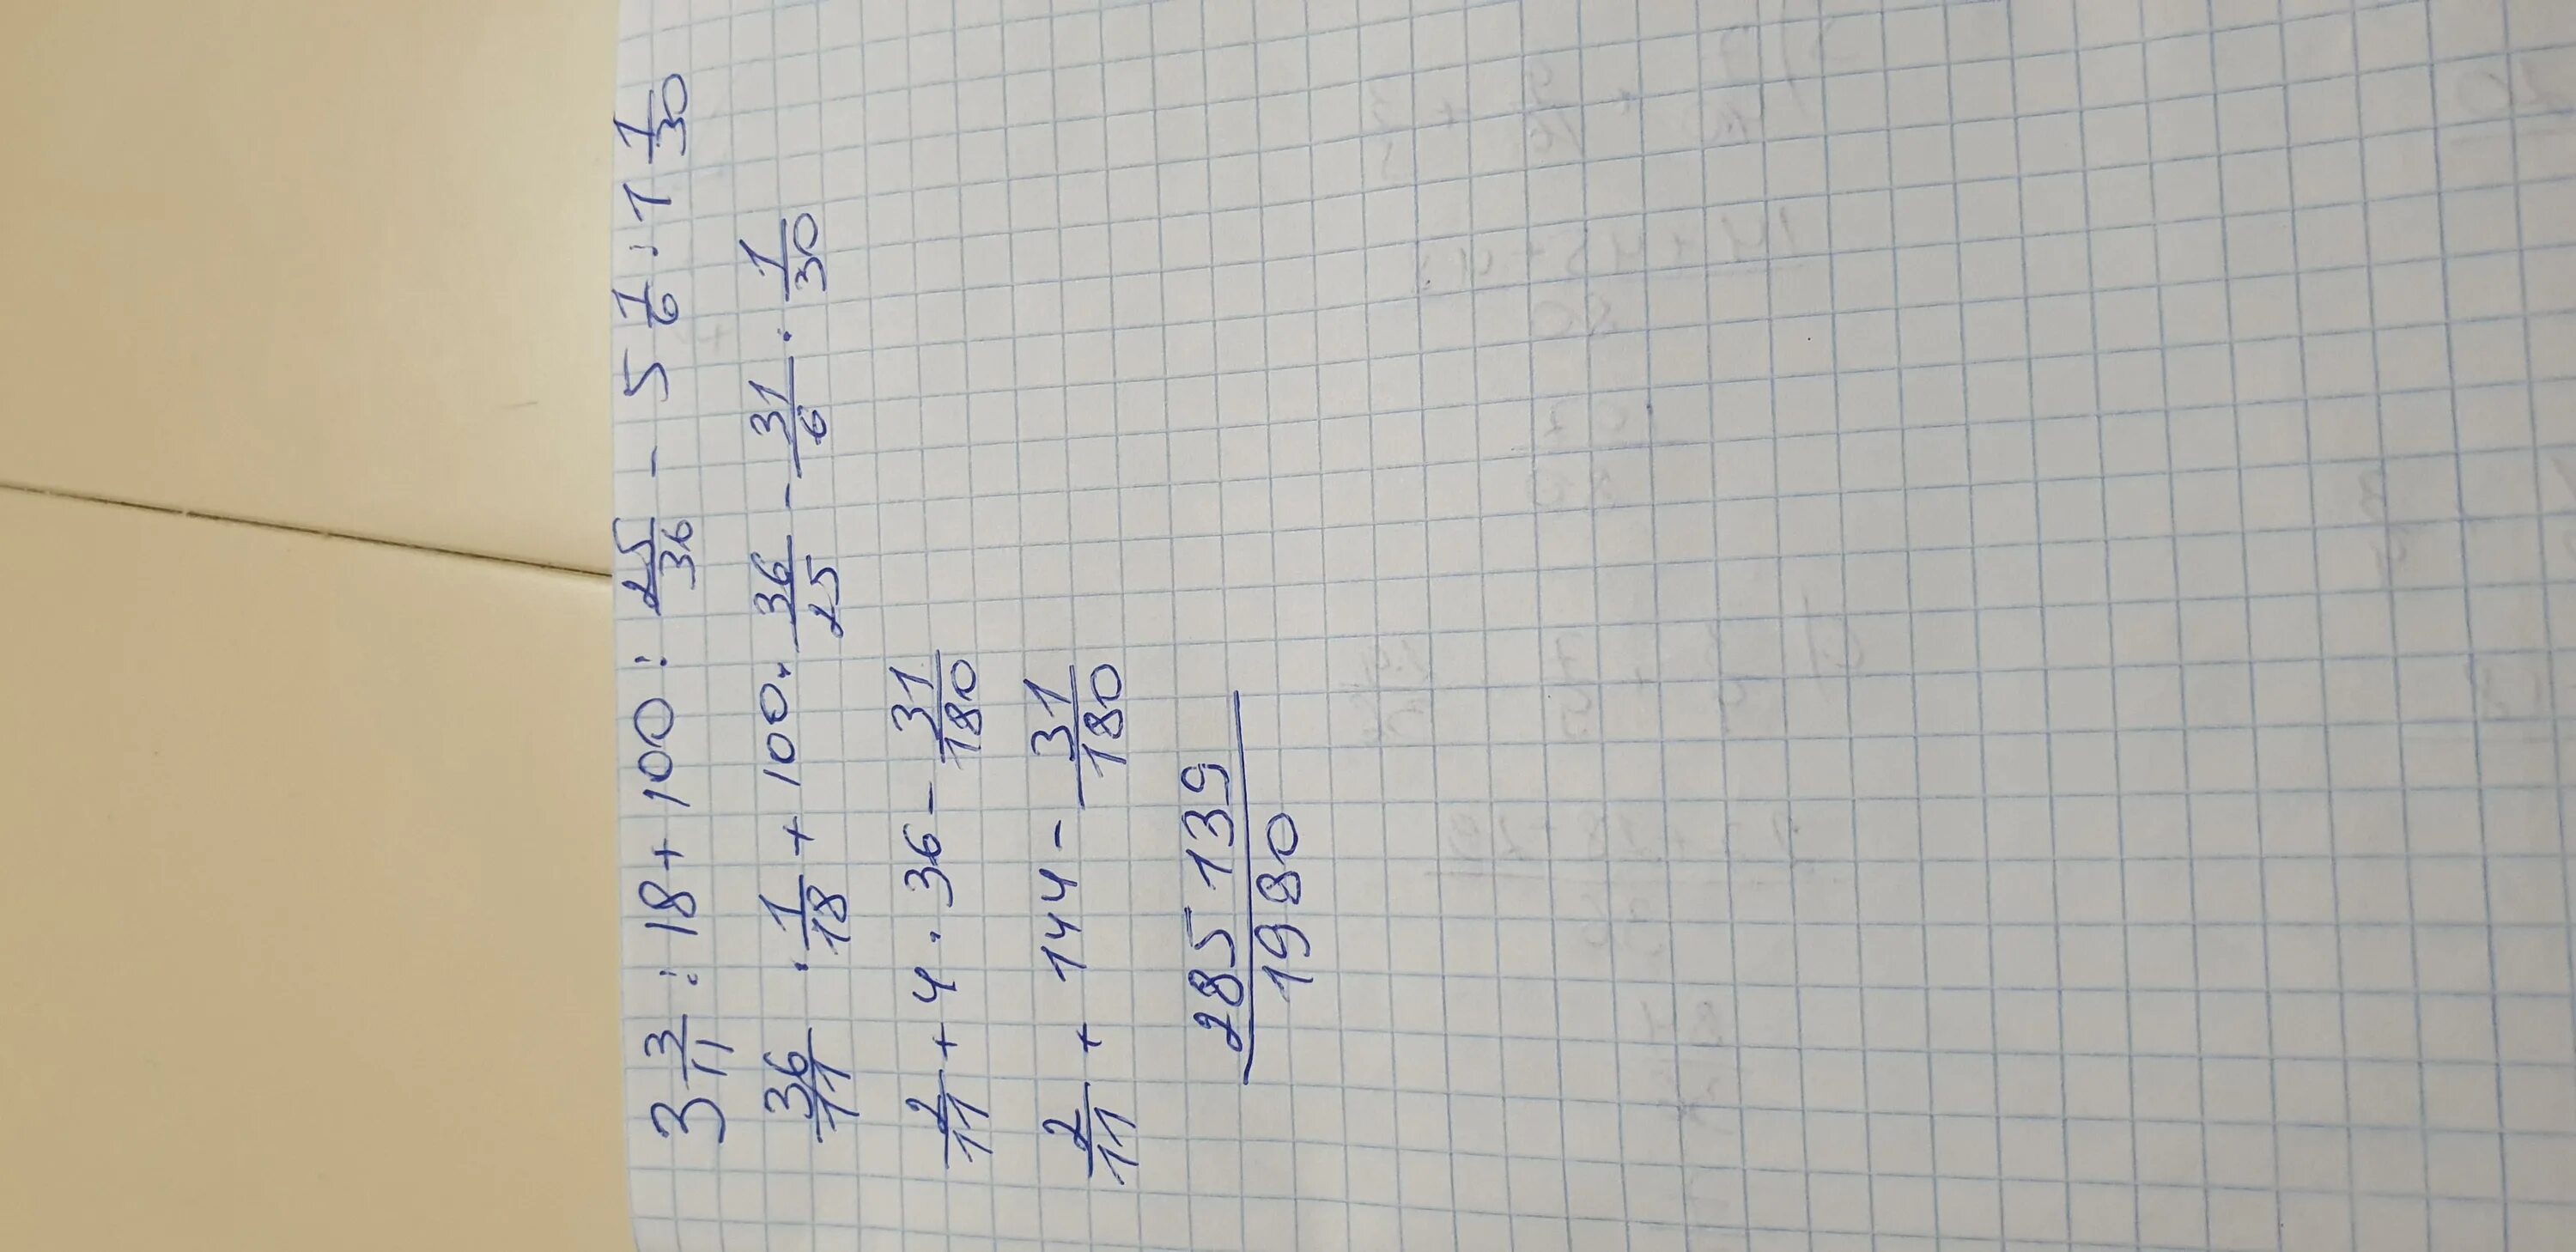 3 3/11 : 18 + 100 : 25/36 - 5 1/6 : 1 1/30
36/11 · 1/18 + 100 · 36/25 - 31/6 · 1/30
2/11 + 4 · 36 - 31/180
2/11 + 144 - 31/180
285 139/1980